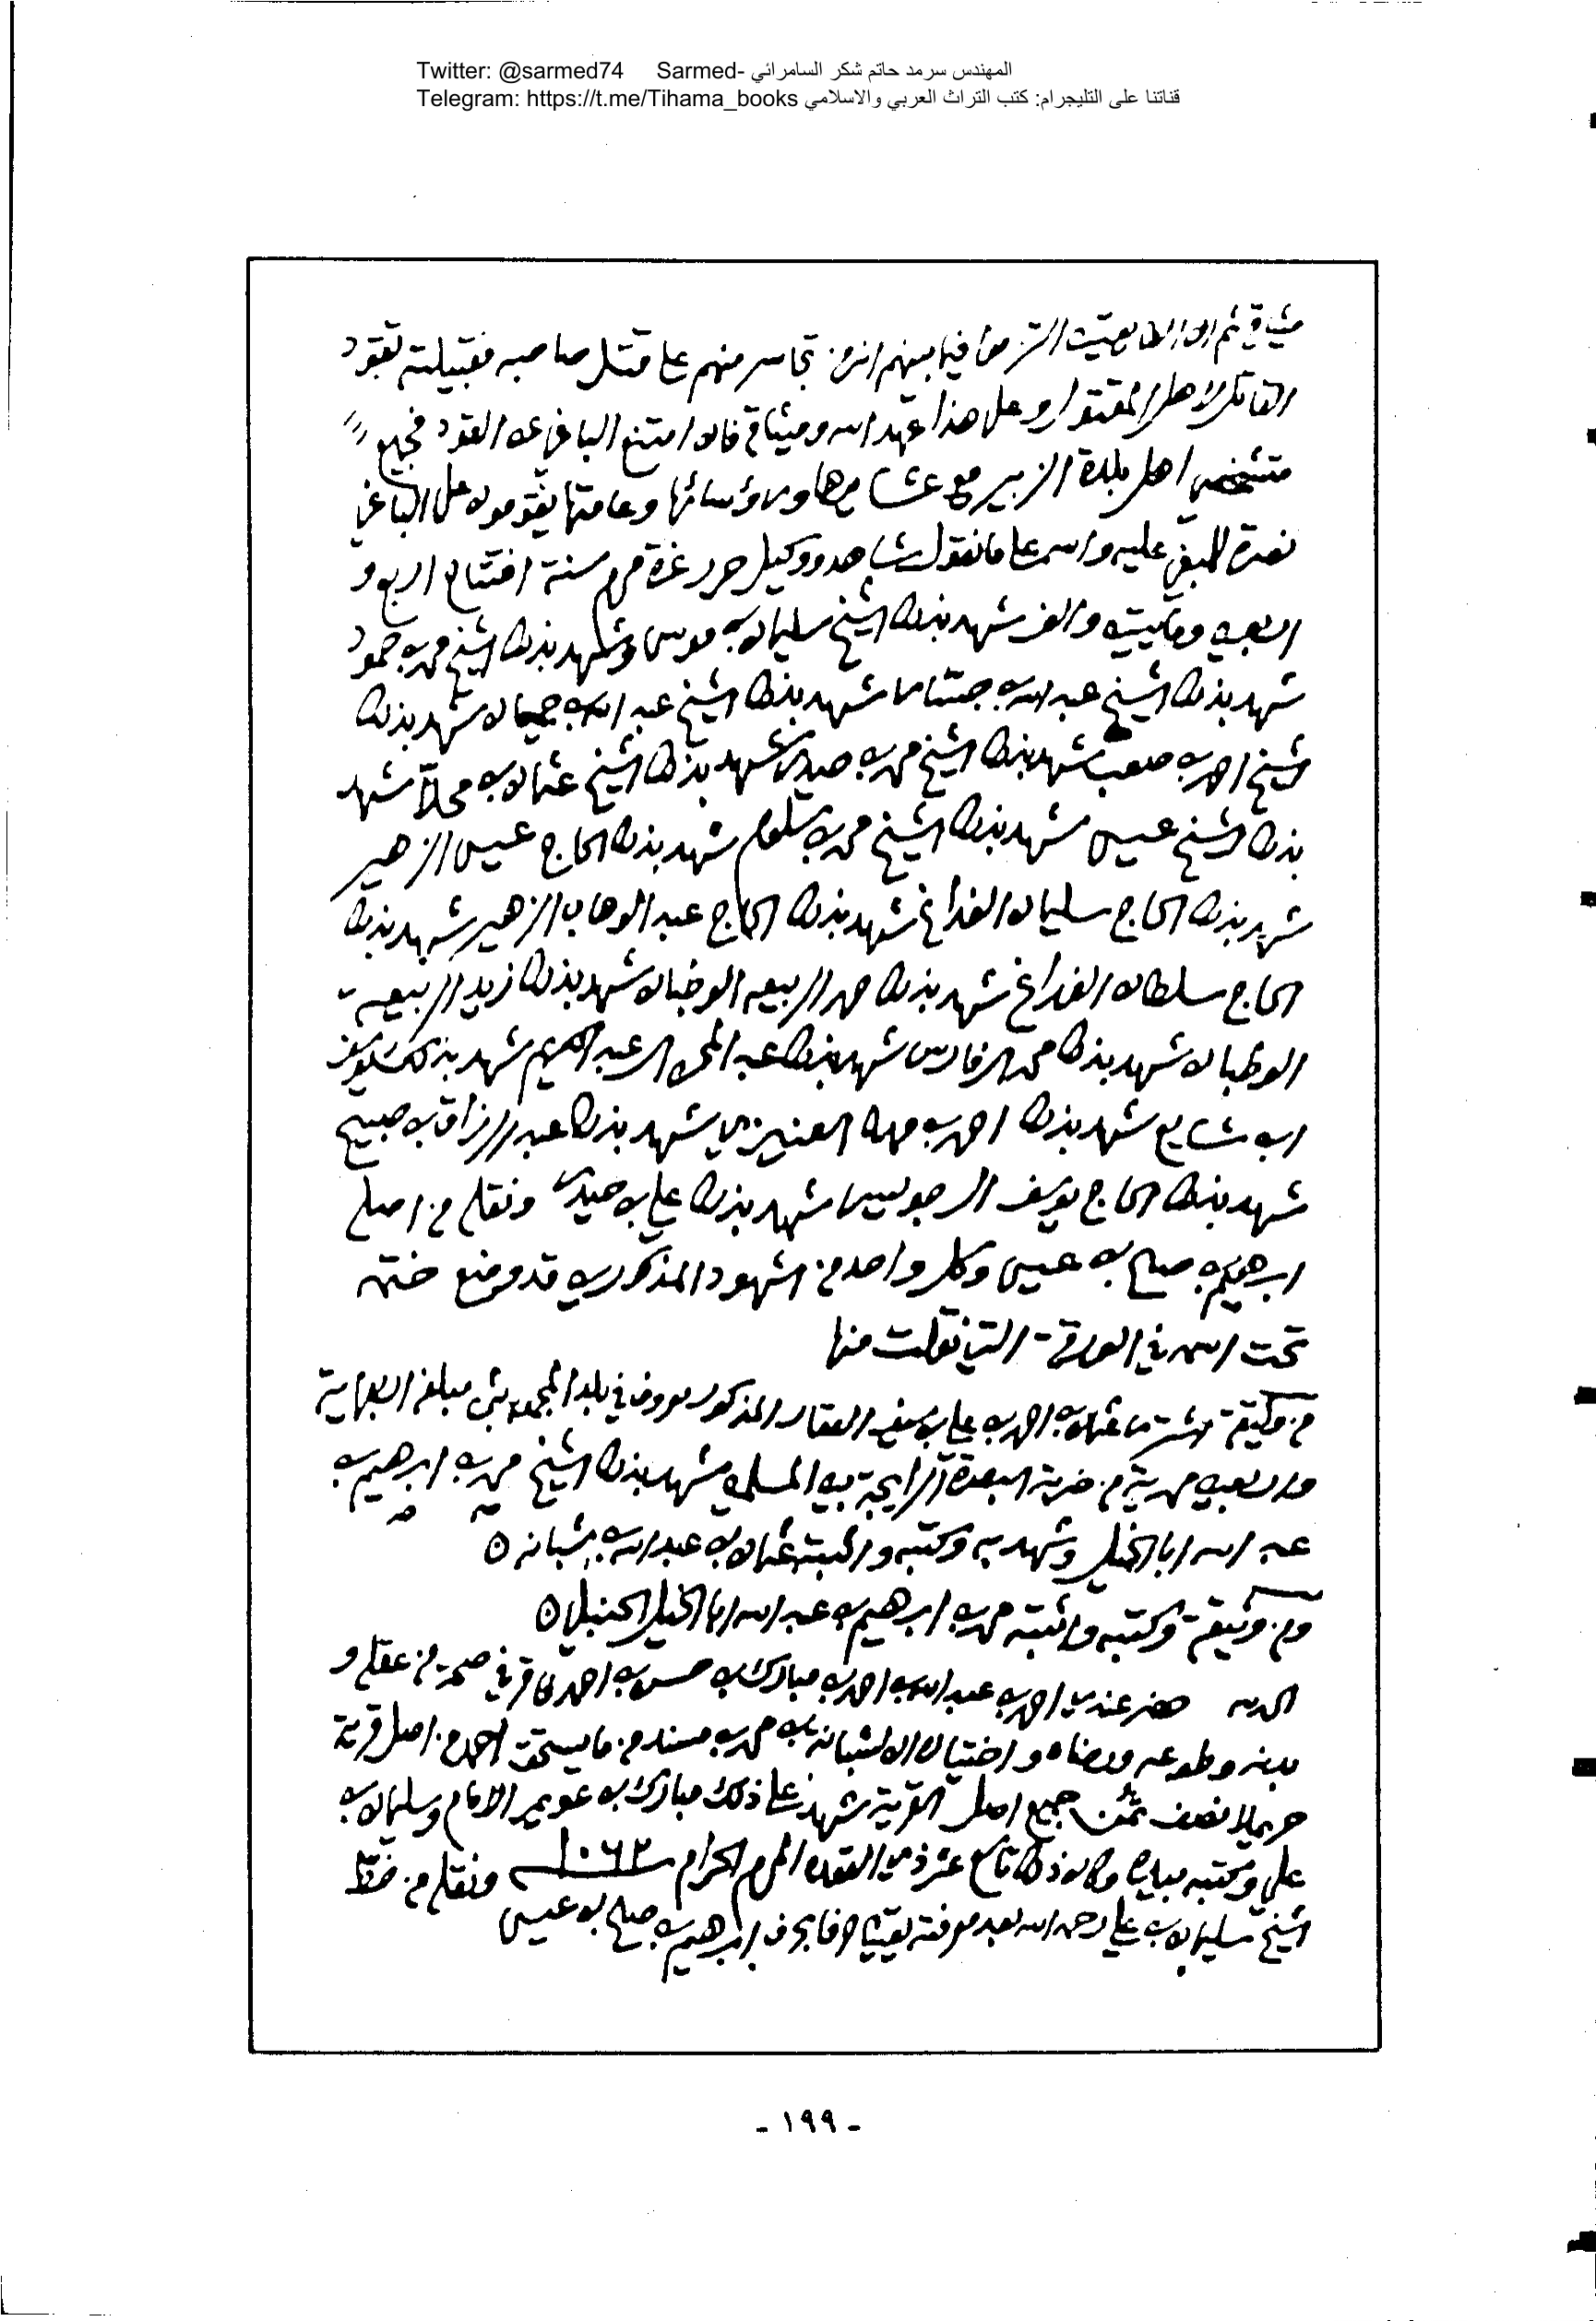 Twitter: @sarmed74 Sarmed- المهندس سرمد حاتم شكر السامرائي
Telegram: https://t.me/Tihama_books قناتنا على التليجرام: كتب التراث العربي والاسلامي
ميثاق ثم ان الطايفتين التزموا فيما بينهم ان من تجاسر منهم على قتل صاحبه فقبيلته تقود
القاتل لاهل المقتول وعلى هذا عهد الله وميثاق فان امتنع الباغي عن القود فجميع
اهل بلدة الزبير مع عشايرها ورؤسائها وعامتها يقومون على الباغي
نصرة للمبغي عليه والله على ما نقول شاهد ووكيل حرر غرة محرم سنة افتتاح اربع و
اربعين ومايتين والف شهد بذلك الشيخ سليمان بن موسى وشهد بذلك الشيخ محمد بن حمود
شهد بذلك الشيخ عبد الله بن شهد بذلك الشيخ عبد الله بن شهد بذلك
الشيخ احمد بن صعب شهد بذلك الشيخ محمد بن شهد بذلك الشيخ عثمان بن شهد
بذلك الشيخ عيسى شهد بذلك الشيخ محمد بن سلوم شهد بذلك الحاج عيسى الزهير
شهد بذلك الحاج سليمان الفداغ شهد بذلك الحاج عبد الوهاب الزهير شهد بذلك
الحاج سلطان الفداغ شهد بذلك حمد الربيعه الوضبان شهد بذلك زيد الربيعه
الوطبان شهد بذلك محمد الفارس شهد بذلك عبد المحسن العبد الكريم شهد بذلك يوسف
ابن شايع شهد بذلك احمد بن مهنا العنيزي شهد بذلك عبد الرزاق بن صبيح
شهد بذلك الحاج يوسف شهد بذلك علي بن ونقله من اصله
ابرهيم بن صالح بن عيسى وكل واحد من الشهود المذكورين قد وضع ختمه
تحت اسمه في الورقة التي نقلت منها
من وثيقة اشترى عثمان بن احمد بن علي بن العقار المذكور معروف في بلد المجمعه بثمن مبلغه اربعماية
واربعين محمدية من ضربة البصرة الرايجة بين المسلمين شهد بذلك الشيخ محمد بن ابرهيم بن
عبد الله ابا الخيل وشهد به وكتبه واثبته عثمان بن عبد الله بن شبانه ٥
ومن وثيقة وكتبه واثبته محمد بن ابرهيم بن عبد الله ابا الخيل الحنبلي ٥
الحمد لله حضر عندي احمد بن عبد الله بن احمد بن مبارك بن حسن بن احمد فاقر في صحة من عقله و
بدنه وطوعه ورضاه واختياره ان محمد بن مسند من ما يستحق احمد من اصل قرية
حريملا نصف ثمن جميع اصل القرية شهد على ذلك مبارك بن عويمر الامام وسليمان بن
علي وكتبه بيده وكان ذلك تاسع عشر ذي القعده المحرم الحرام سنة ١٠٦٢ ونقله من خط
الشيخ سليمان بن علي رحمه الله بعد معرفته يقينا حرفا بحرف ابرهيم بن صالح بن عيسى
- ١٩٩ -